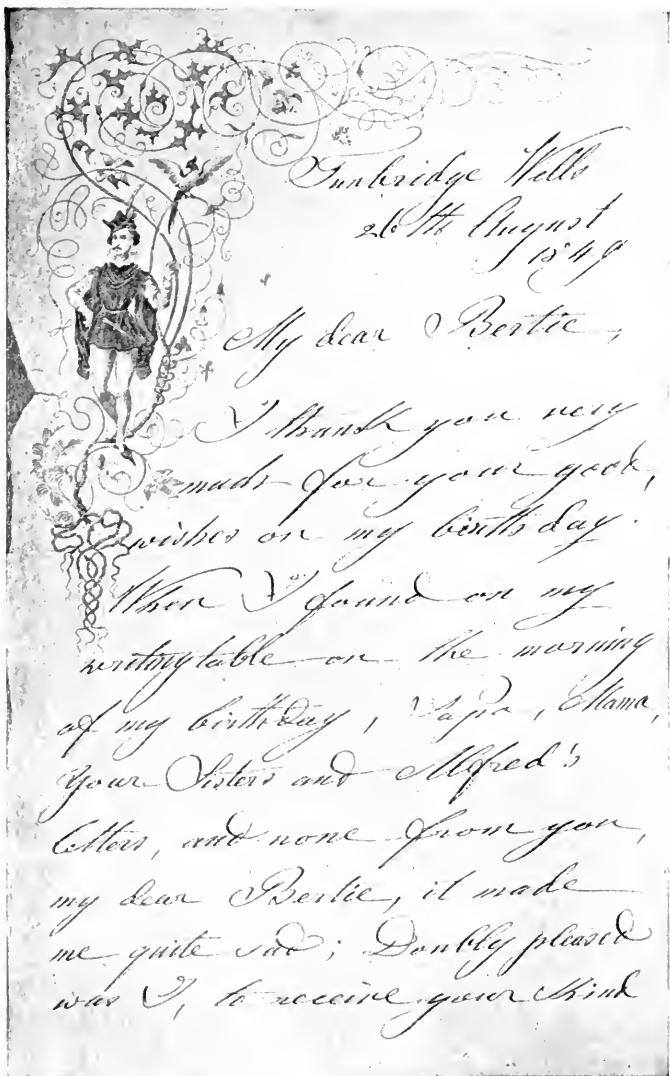 Tunbridge Wells
26th August
1849
My dear Bertie,
I thank you very
much for your good,
wishes on my birthday.
When I found on my
writingtable on the morning
of my birthday, Papa, Mama,
Your Sisters and Alfred's
letters, and none from you,
my dear Bertie, it made
me quite sad; Doubly pleased
was I, to receive your kind